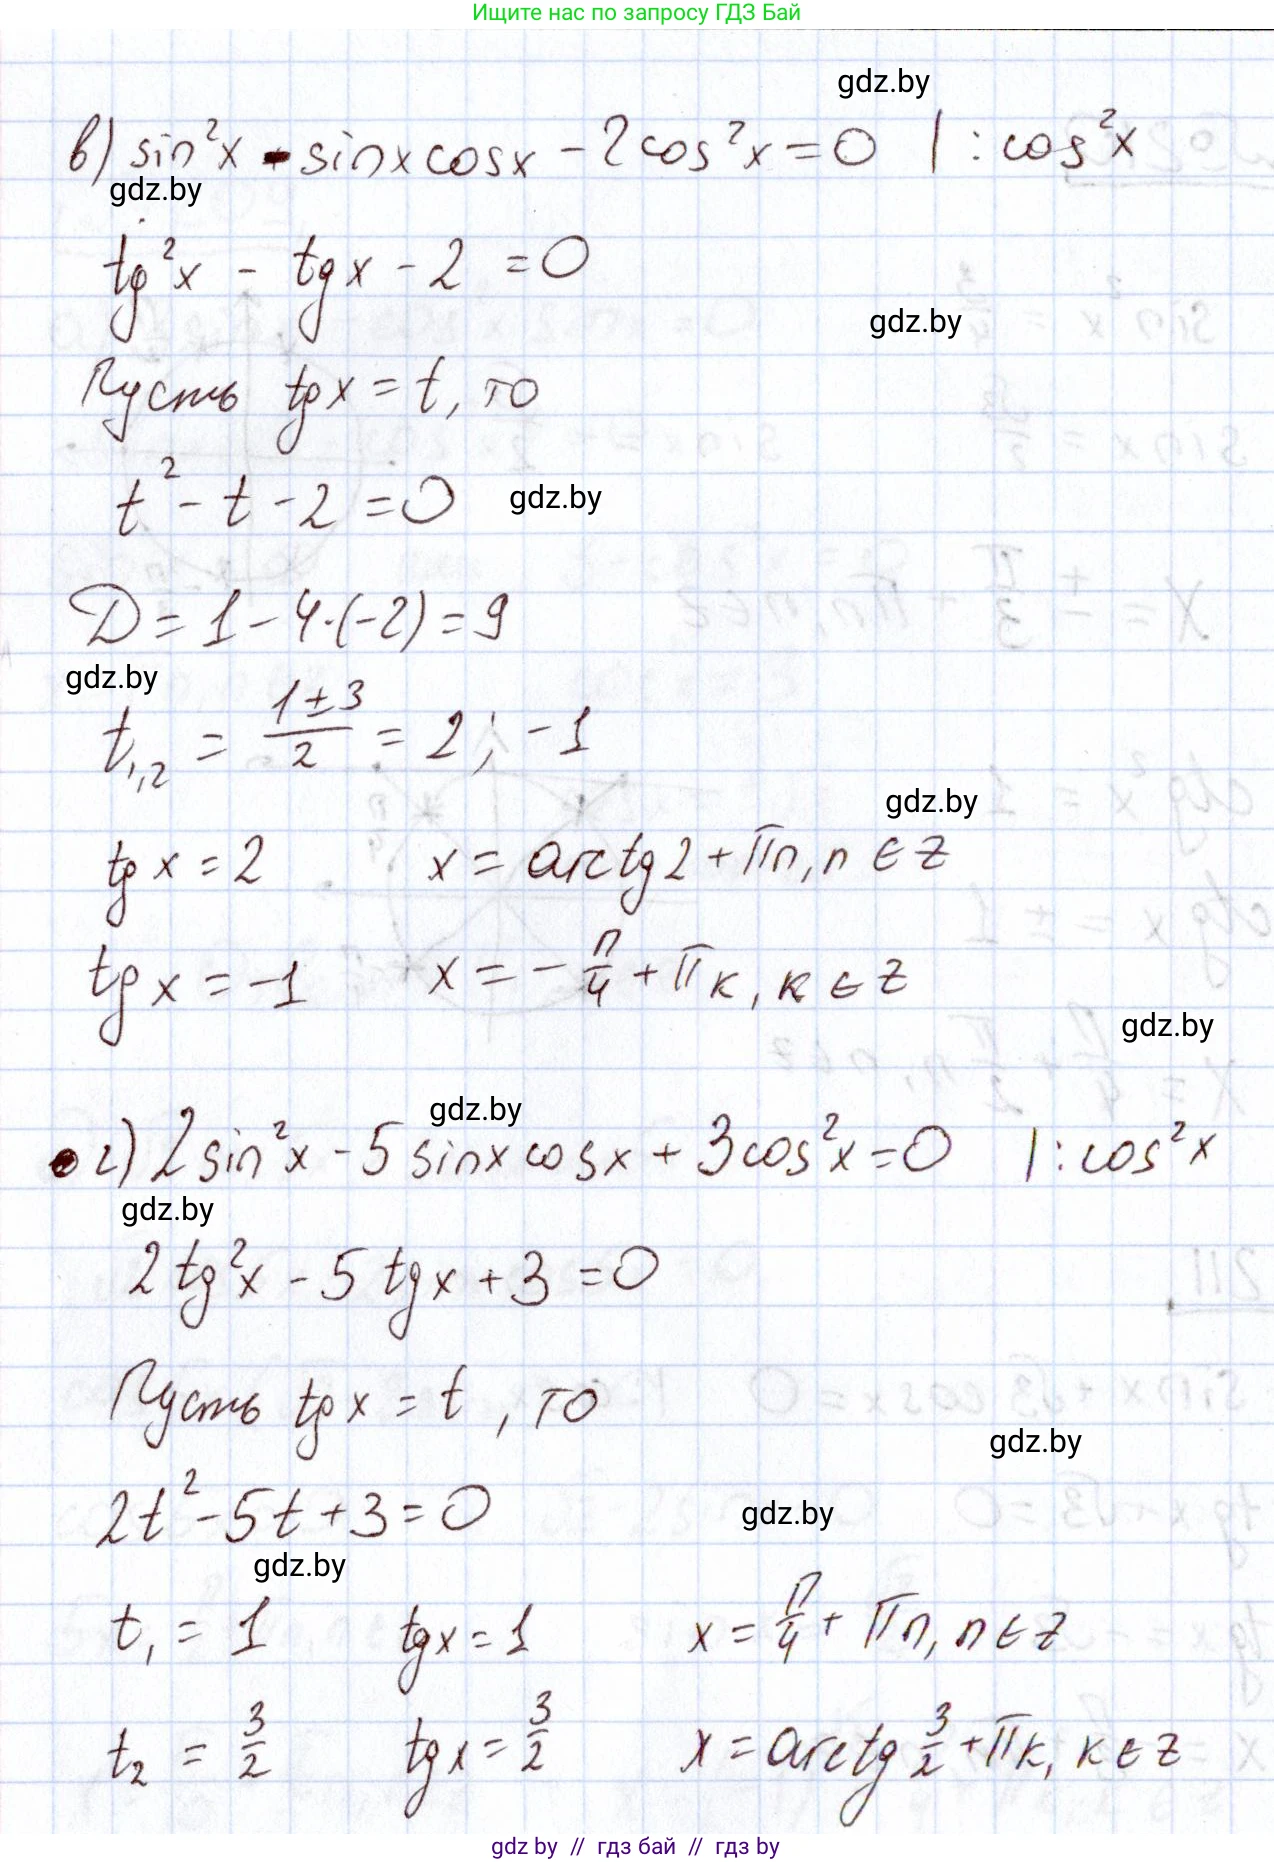 Ищите нас по запросу ГДЗ Бай
gdz.by
в) sin²x - sinx cosx - 2cos²x = 0 | : cos²x
gdz.by
tg²x - tgx - 2 = 0
gdz.by
Пусть tgx = t, то
t² - t - 2 = 0 gdz.by
D = 1 - 4·(-2) = 9
gdz.by
t₁,₂ = (1±3)/2 = 2; -1
gdz.by
tgx = 2 x = arctg2 + πn, n ∈ Z
tgx = -1 x = -π/4 + πk, k ∈ Z
gdz.by
gdz.by
г) 2sin²x - 5sinx cosx + 3cos²x = 0 | : cos²x
gdz.by
2tg²x - 5tgx + 3 = 0
Пусть tgx = t, то
gdz.by
2t² - 5t + 3 = 0
gdz.by
gdz.by
t₁ = 1 tgx = 1 x = π/4 + πn, n ∈ Z
t₂ = 3/2 tgx = 3/2 x = arctg 3/2 + πk, k ∈ Z
gdz by // гдз бай // гдз by